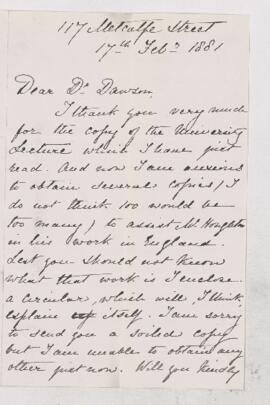 117 Metcalfe Street
17th Feby 1881
Dear Dr Dawson,
I thank you very much
for the copy of the University
Lecture which I have just
read. And now I am anxious
to obtain several copies (I
do not think 100 would be
too many) to assist Mr Houghton
in his work in England.
Lest you should not know
what that work is I enclose
a circular, which will, I think,
explain itself. I am sorry
to send you a soiled copy
but I am unable to obtain any
other just now. Will you kindly